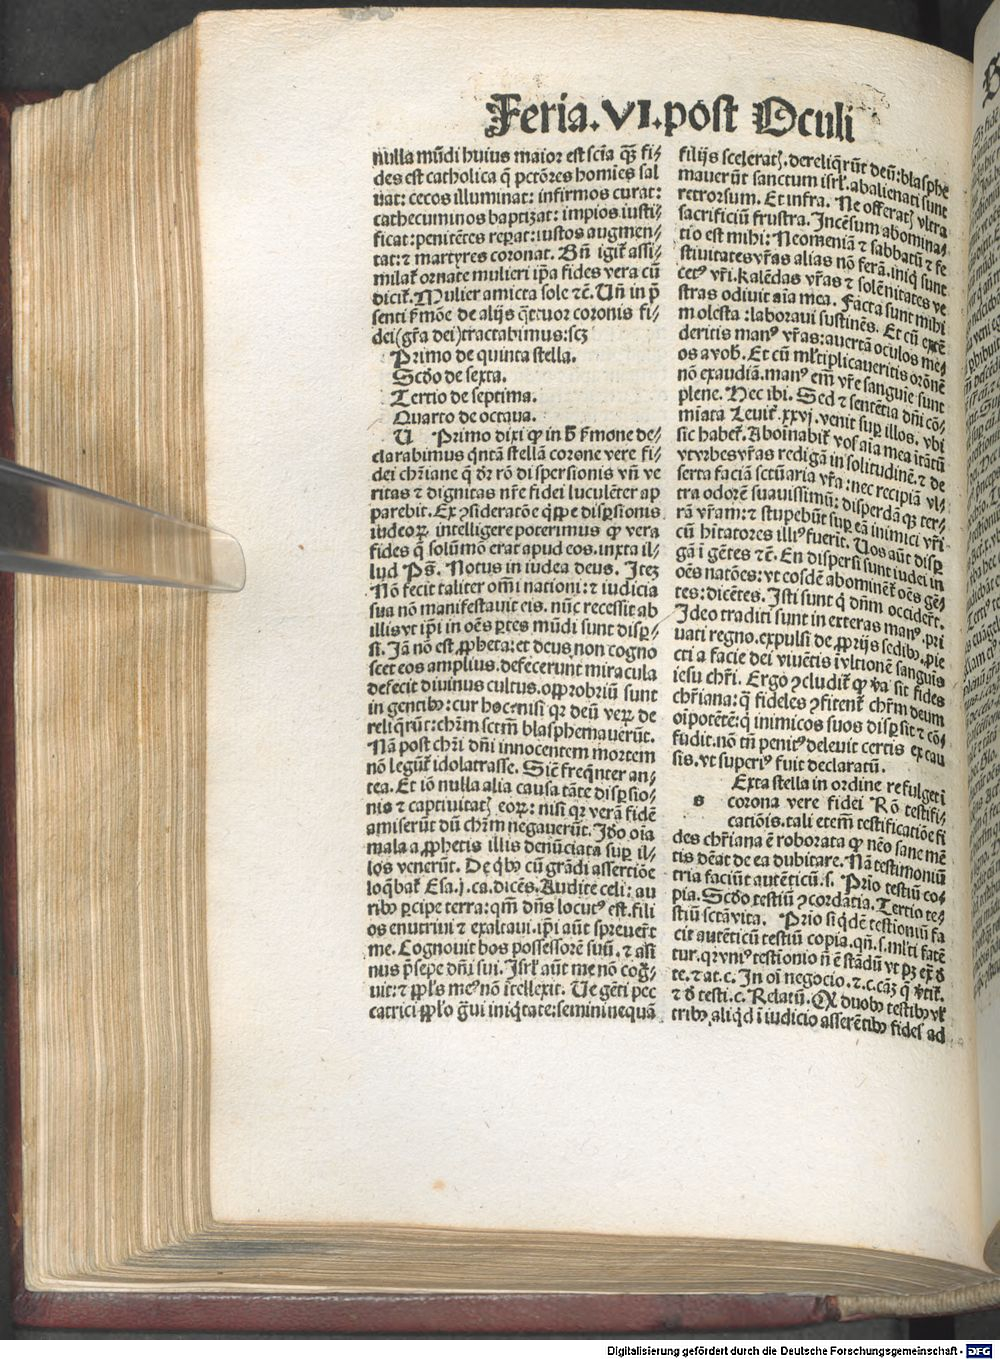 Feria.VI.post Oculi
nulla mūdi huius maior est scīa qȝ fi⸗
des est catholica q̄ pctōres homīes sal
uat: cecos illuminat: infirmos curat:
cathecuminos baptizat: impios iusti⸗
ficat: penitētes reꝑat: iustos augmen⸗
tat: ⁊ martyres coronat. Bn̄ igiť assi⸗
milať ornate mulieri ip̄a fides vera cū
diciť. Mulier amicta sole ⁊c. Un̄ in p̄
senti f̄mōe de alijs q̄ttuor coronis fi⸗
dei (gr̄a dei) tractabimus: scȝ
Primo de quinta stella.
Scd̄o de sexta.
Tertio de septima.
Quarto de octaua.
U Primo dixi ꝙ in h̄ f̄mone de⸗
clarabimus q̄ntā stellā corone vere fi⸗
dei chr̄iane q̄ dr̄ rō dispersionis vn̄ ve
ritas ⁊ dignitas nr̄e fidei luculēter ap
parebit. Ex ꝯsideratōe q̄ꝑpe disꝑsionis
iudeoꝝ intelligere poterimus ꝙ vera
fides q̄ solūmō erat apud eos. iuxta il⸗
lud Ps̄. Notus in iudea deus. Iteȝ
Nō fecit taliter om̄i nationi: ⁊ iudicia
sua nō manifestauit eis. nūc recessit ab
illis vt ip̄i in oēs ꝑtes mūdi sunt disꝑ⸗
si. Iā nō est ꝓpheta: et deus non cogno
scet eos amplius. defecerunt miracula
defecit diuinus cultus. opprobriū sunt
in gentibꝰ: cur hoc: nisi qꝛ deū veꝝ de
reliq̄rūt: chr̄m sctm̄ blasphemauerūt.
Nā post chr̄i dn̄i innocentem mortem
nō legūť idolatrasse. Sic̄ freq̄nter an⸗
tea. Et iō nulla alia causa tāte disꝑsio⸗
nis ⁊ captiuitatꝭ eoꝝ: nisi qꝛ verā fidē
amiserūt dū chr̄m negauerūt. Id̄o oīa
mala a ꝓphetis illis denūciata suꝑ il⸗
los venerūt. De q̄bꝰ cū grādi assertiōe
loq̄bať Esa. j. ca. dicēs. Audite celi: au
ribꝰ ꝑcipe terra: qm̄ dn̄s locutꝰ est. fili
os enutriui ⁊ exaltaui. ip̄i aūt spreuerūt
me. Cognouit bos possessorē suū. ⁊ asi
nus p̄sepe dn̄i sui. Isrł aūt me nō cog̅⸗
uit: ⁊ ppl̄s meꝰ nō ītellexit. Ve gēti pec
catrici ppl̄o g̅ui iniq̄tate: semini nequā
filijs sceleratꝭ. dereliq̄rūt deū: blasphe
mauerūt sanctum isrł. abalienati sunt
retrorsum. Et infra. Ne offeratꝭ vltra
sacrificiū frustra. Incēsum abomina⸗
tio est mihi: Neomeniā ⁊ sabbatū ⁊ fe
stiuitates vr̄as alias nō ferā. iniq̄ sunt
cetꝰ vr̄i. kalēdas vr̄as ⁊ solēnitates ve
stras odiuit aīa mea. Facta sunt mihi
molesta: laboraui sustinēs. Et cū extē
deritis manꝰ vr̄as: auertā oculos me⸗
os a vob̄. Et cū ml̄tiplicaueritis orōnē
nō exaudiā. manꝰ em̄ vr̄e sanguie sunt
plene. Hec ibi. Sed ⁊ sentētia dn̄i cō⸗
miata Leuiť. xxvj. venit suꝑ illos. vbi
sic habeť. Aboīnabiť vos aīa mea ītātū
vt vrbes vr̄as redigā in solitudinē. ⁊ de
serta faciā sctūaria vr̄a: nec recipiā vl⸗
tra odorē suauissimū: disꝑdā qꝫ ter⸗
rā vr̄am: ⁊ stupebūt suꝑ eā inimici vr̄i
cū hītatores illiꝰ fuerīt. Uos aūt disꝑ
gā ī gētes ⁊c. En dispersi sunt iudei in
oēs natōes: vt eosdē abominēť oēs gē⸗
tes: dicētes. Isti sunt q̄ dn̄m occiderūt.
Ideo traditi sunt in exteras manꝰ. pri
uati regno. expulsi de ꝓprijs sedibꝰ. ꝓie
cti a facie dei viuētis ī vltionē sanguīs
iesu chr̄i. Ergo ꝯcludiť ꝙ v̄a sit fides
chr̄iana: q̄ fideles ꝯfitenť chr̄m deum
oīpotētē: q̄ inimicos suos disꝑsit ⁊ cō⸗
fudit. nō tn̄ penitꝰ deleuit certis ex cau
sis. vt superiꝰ fuit declaratū.
s Exta stella in ordine refulget ī
corona vere fidei Rō testifi⸗
catiōis. tali etem̄ testificatiōe fi
des chr̄iana ē roborata ꝙ nēo sane mē
tis dēat de ea dubitare. Nā testimoniū
tria faciūt autēticū. s. Prīo testiū co⸗
pia. Scd̄o testiū ꝯcordātia. Tertio te⸗
stiū sctā vita. Prīo siq̄dē testioniū fa
cit autēticū testiū copia. qn̄. s. ml̄ti fatē
tur. qꝛ vniꝰ testionio n̄ ē stādū vt pȝ ex̄ d̄
te. ⁊ at. c. In oī negocio. ⁊. c. cāȝ q̄ v̄tiť.
⁊ d̄ testi. c. Relatū. Qꝛ duobꝰ testibꝰ vł
tribꝰ aliq̄d ī iudicio asserētibꝰ fides ad
Digitalisierung gefördert durch die Deutsche Forschungsgemeinschaft - DFG